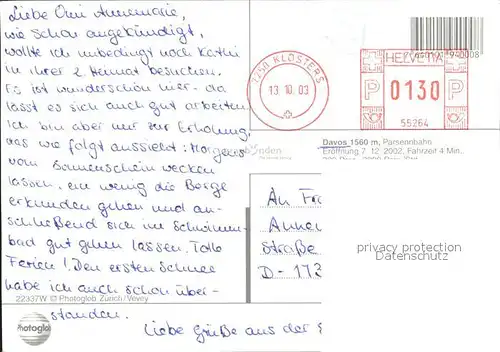 Liebe Omi Annemarie,
wie schon angekündigt,
wollte ich unbedingt noch Kathi
in ihrer 2. Heimat besuchen.
Es ist wunderschön hier - da
lässt es sich auch gut arbeiten.
Ich bin aber nur zur Erholung,
was wie folgt aussieht: Morgens
vom Sonnenschein wecken
lassen, ein wenig die Berge
erkunden gehen und an-
schließend sich im Schwimm-
bad gut gehen lassen. Tolle
Ferien! Den ersten Schnee
habe ich auch schon über-
standen.
Liebe Grüße aus der
7250 KLOSTERS
13.10.03
HELVETIA
P 0130 P
55264
Davos 1560 m, Parsennbahn
Eröffnung 7. 12. 2002, Fahrzeit 4 Min.,
An Fra
Annem
Straße
D-173
privacy protection
Datenschutz
22337W © Photoglob Zürich/Vevey
Photoglob